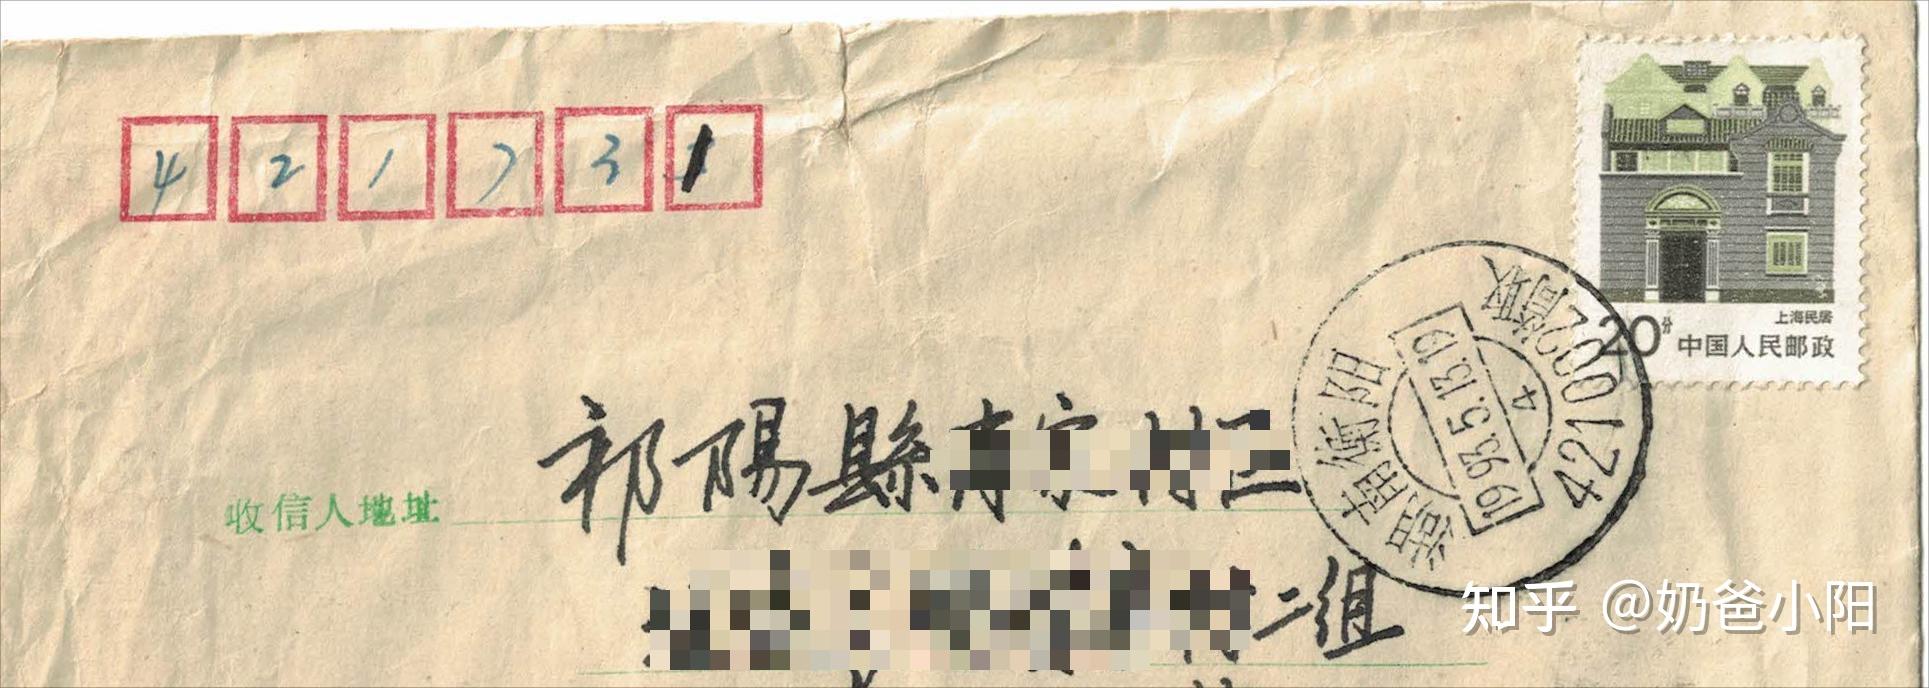 421731
上海民居
20分 中国人民邮政
湖南衡阳
1993.5.13.19
4
421002 宵取
祁陽縣
收信人地址
二组
知乎 @奶爸小阳